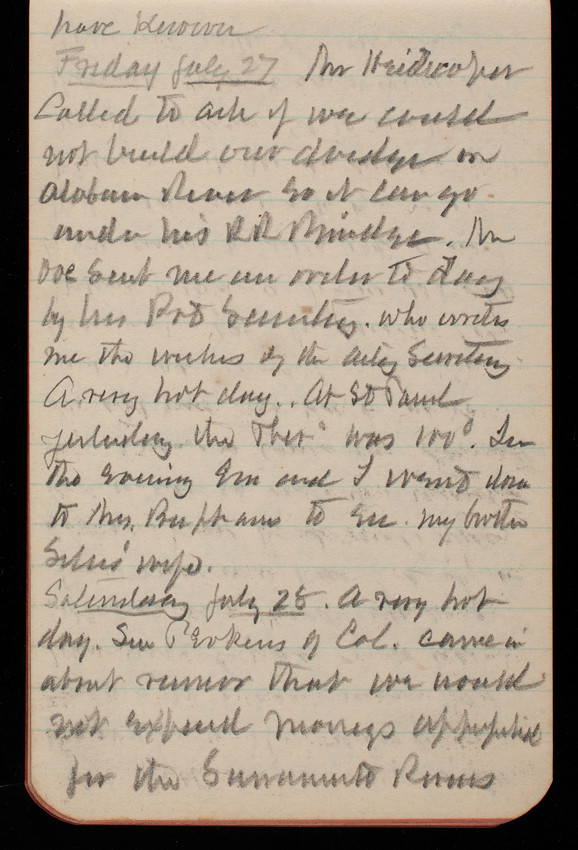 have
Friday July 27 Mr Heidecoper
Called to ask if we could
not build our dredge on
Alabam River so it can go
under his RR Bridge. Mr
Doe sent me an order to day
by his Pvt Secretary. who writes
me the wishes of the actg Secretary
A very hot day.. At St Paul
yesterday the Ther° was 100°. In
the evening Em and I went down
to Mrs. to see my brother
Silas' wife.
Saturday July 28. A very hot
day. Sen Perkins of Cal. came in
about rumor that we would
not expend moneys
for the Sacramento Rivers